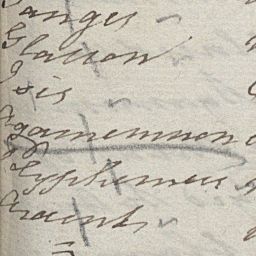 Ganges
Glatton
Isis
Agamemnon
Polyphemus
Ardent